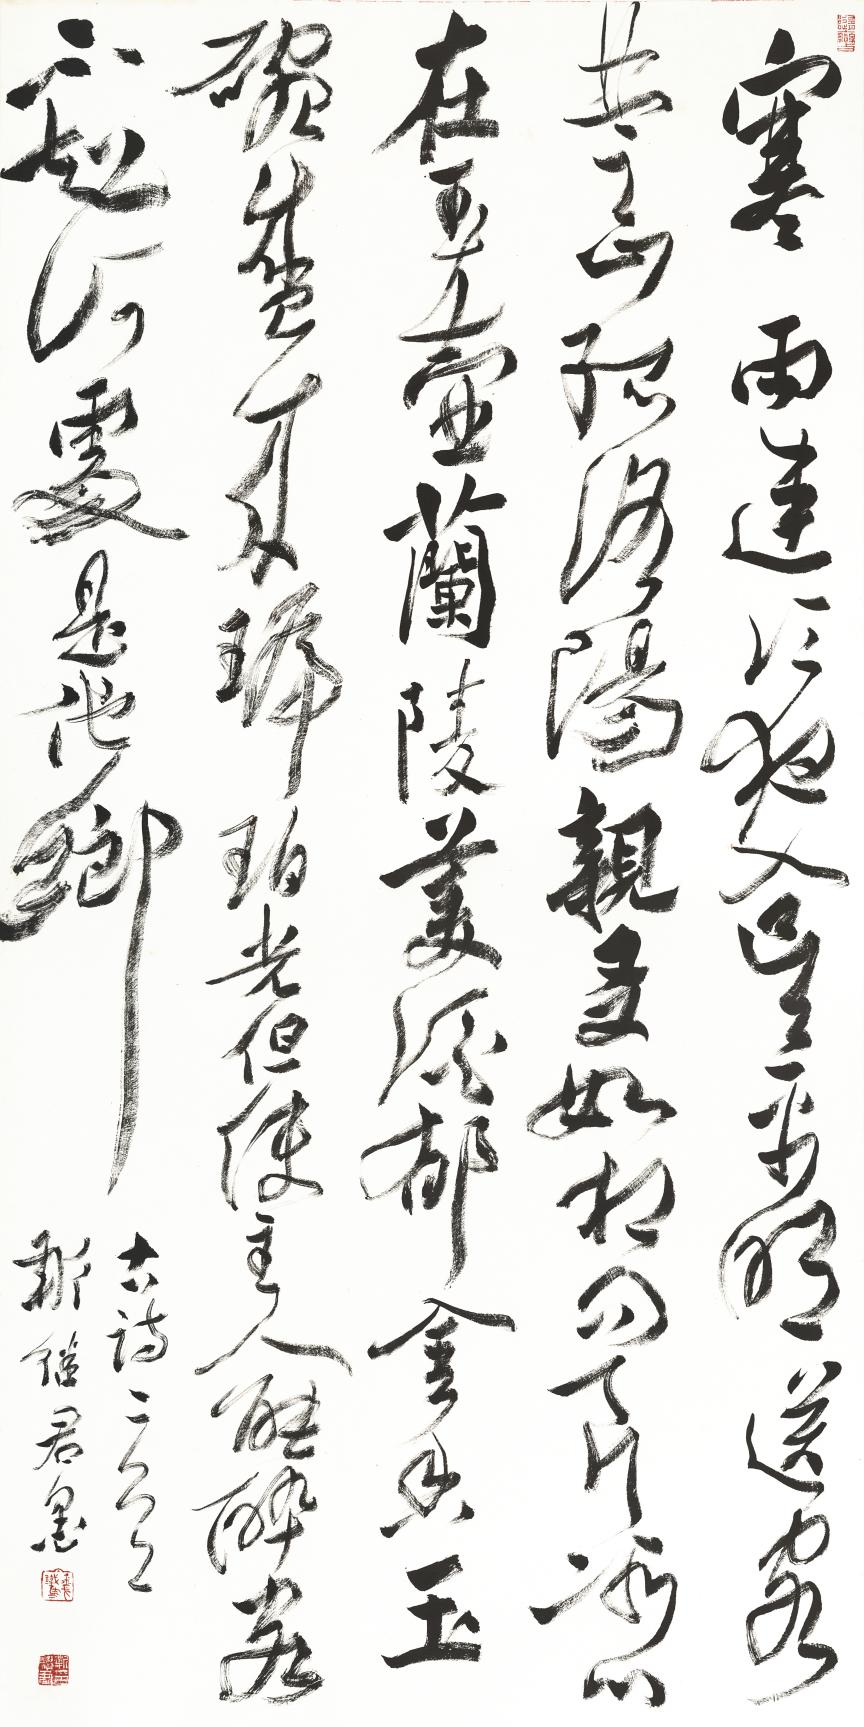 寒雨連江夜入吳平明送客
楚山孤洛陽親友如相問一片冰心
在玉壺蘭陵美酒郁金香玉
碗盛來琥珀光但使主人能醉客
不知何處是他鄉
古詩二首
靳继君墨